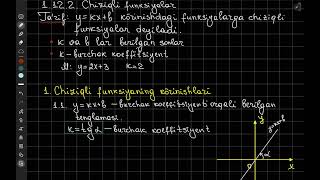 1.12.2. Chiziqli funksiyalar
Ta'rif: y=kx+b ko'rinishdagi funksiyalarga chiziqli
funksiyalar deyiladi.
• k va b lar berilgan sonlar
• k - burchak koeffitsiyent
M: y=2x+3 k=2
1. Chiziqli funksiyaning ko'rinishlari
1.1. y=kx+b - burchak koeffitsiyent orqali berilgan
tenglamasi.
k=tg α - burchak koeffitsiyent
y
y=kx+b
α
0
x